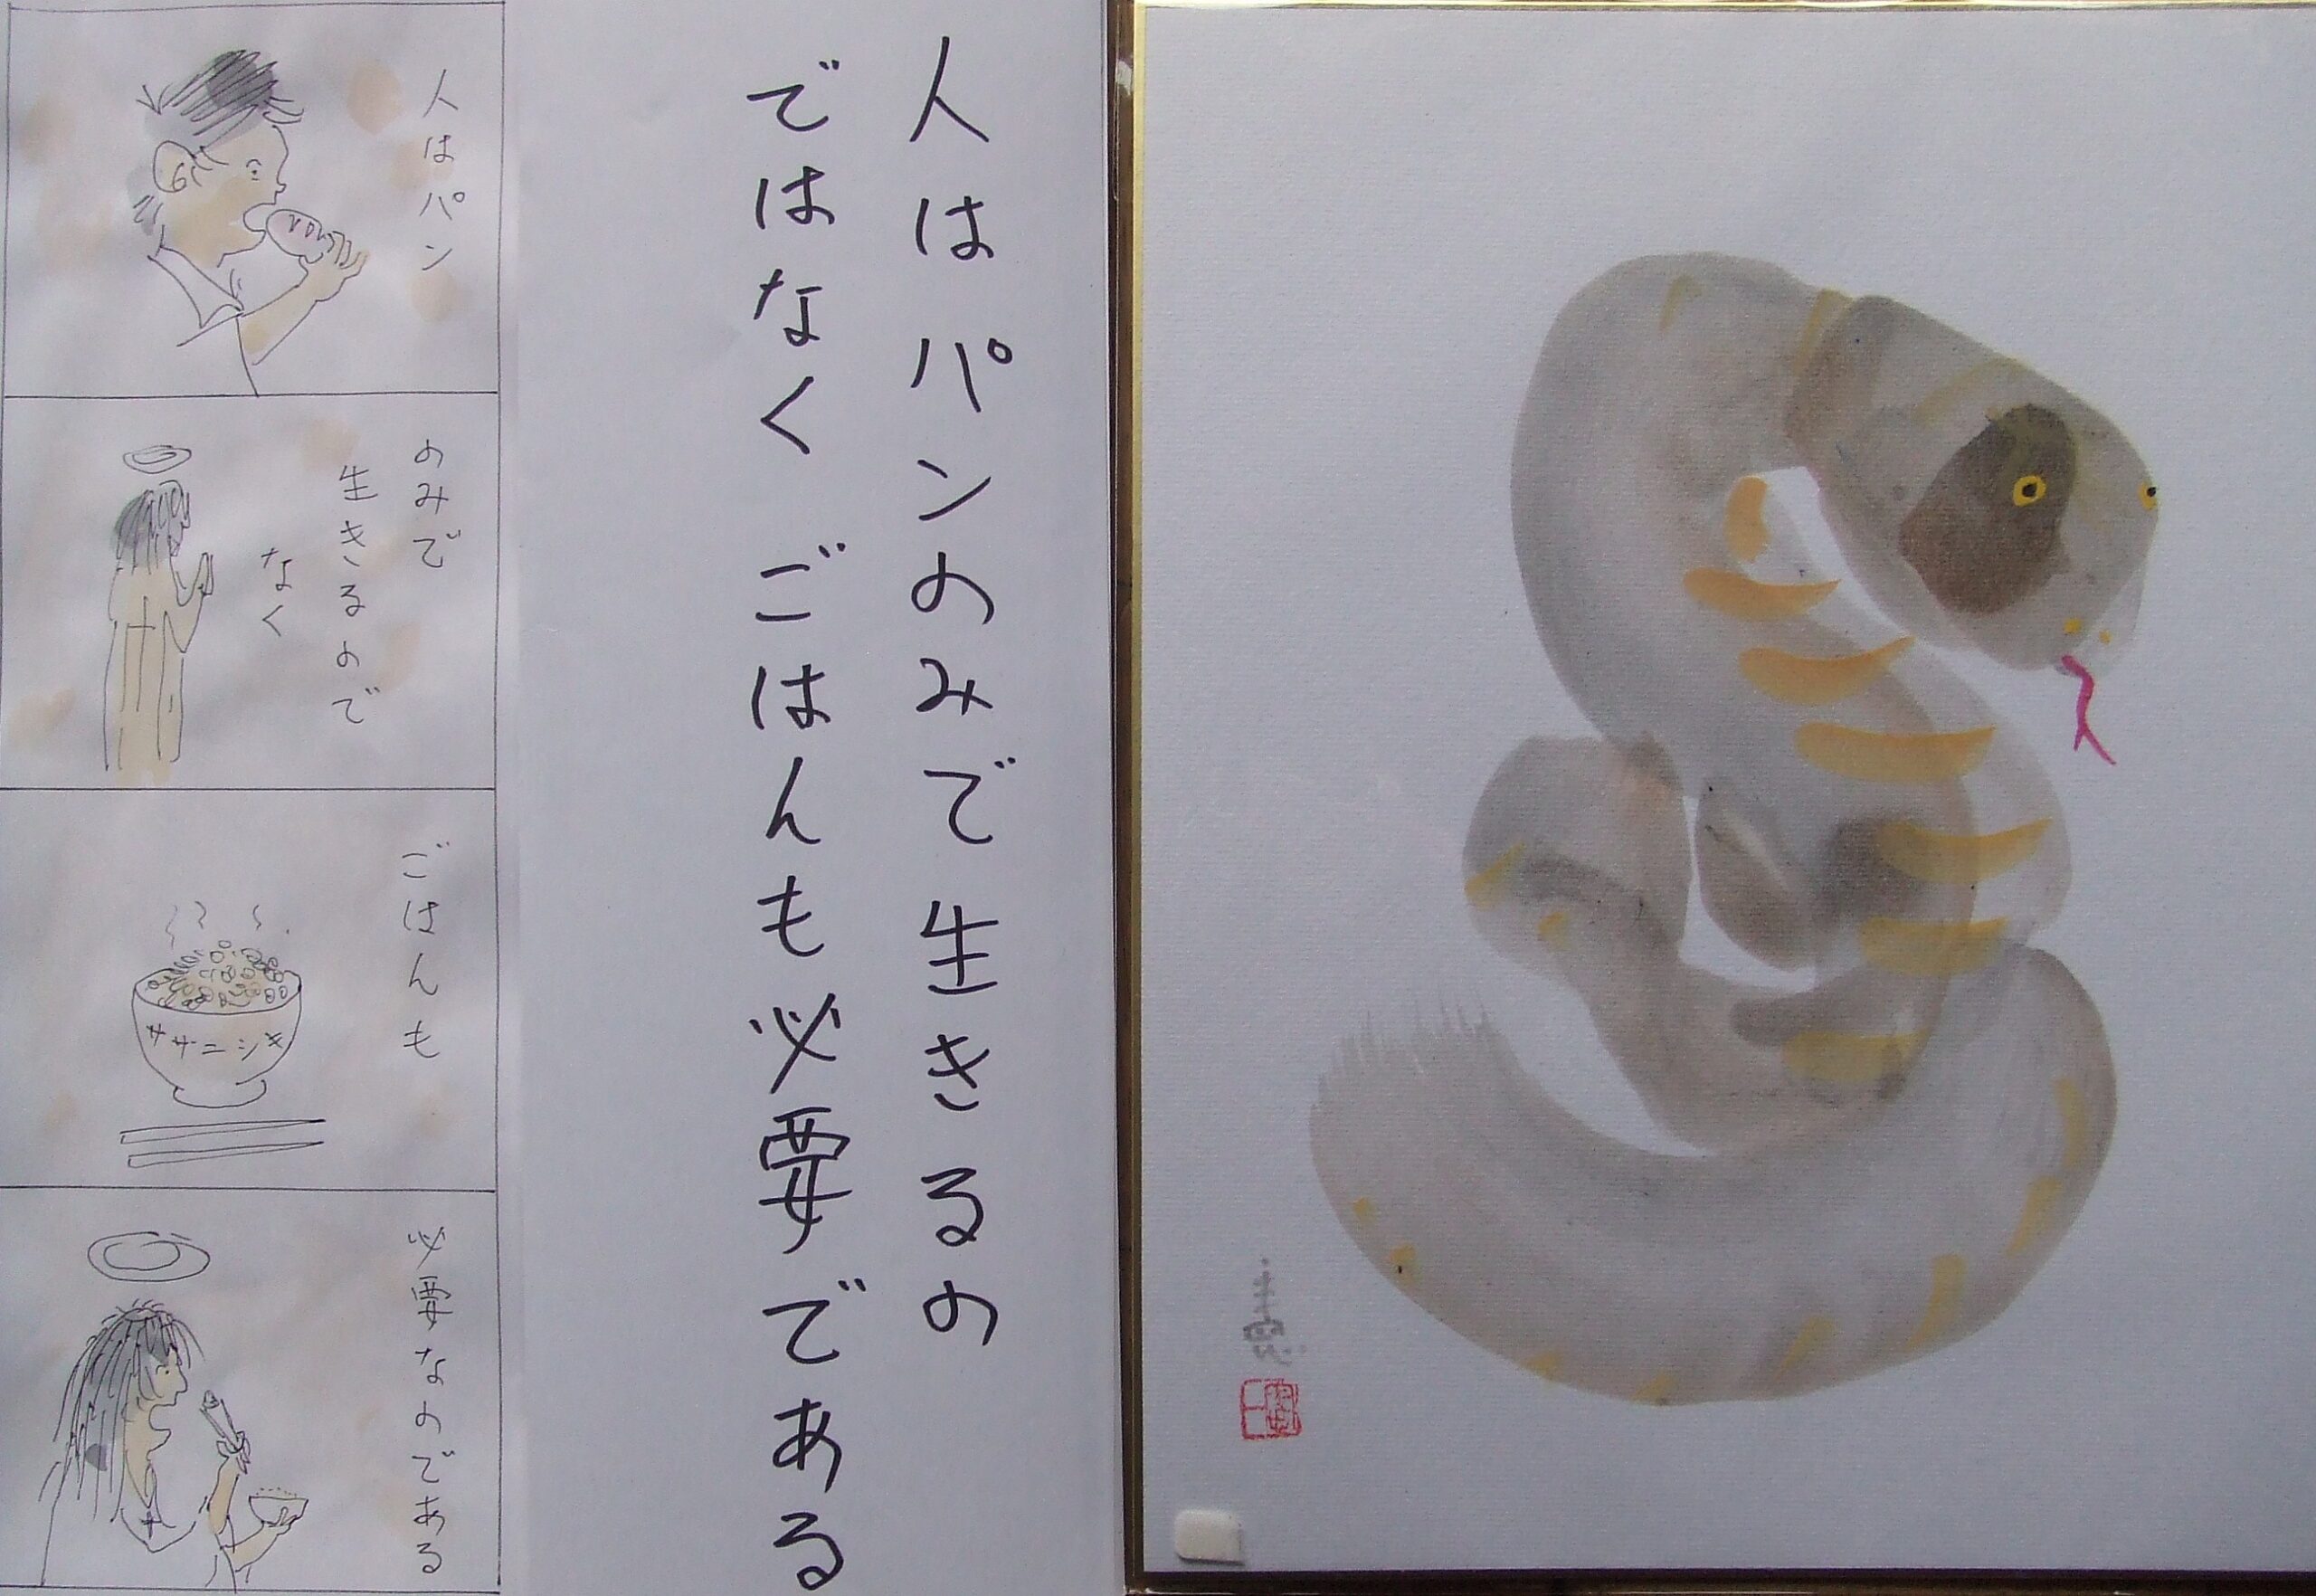 人はパンのみで生きるの
ではなくごはんも必要である
人はパン
のみで
生きるので
なく
ごはんも
ササニシキ
必要なのである